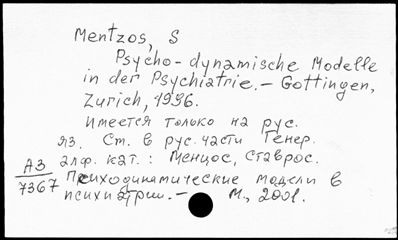 Mentzos, S
Psycho-dynamische Modelle
in der Psychiatrie.- Gottingen,
Zurich, 1996.
Имеется только на рус.
яз. См. в рус. части Генер.
алф. кат.: Менцос, Ставрос.
А3
7367
Психодинамические модели в
психиатрии.- М., 2001.